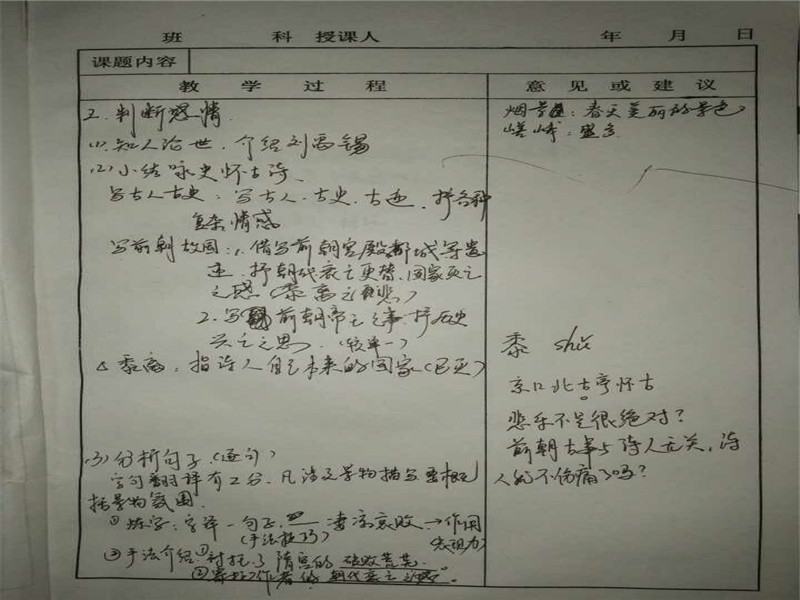 班 科 授课人 年 月 日
课题内容
教 学 过 程
意 见 或 建 议
2. 判断感情.
(1). 知人论世, 介绍刘禹锡
(2) 小结咏史怀古诗、
写古人古史: 写古人、古史、古迹, 抒各种
复杂情感
写前朝故国: 1. 借写前朝宫殿都城等遗
迹. 抒朝代衰亡更替、国家灭亡
之感 (黍离之悲)
2. 写前朝帝王之事, 抒历史
兴亡之思. (较单一)
△ 黍离: 指诗人自己本来的国家 (已灭)
(3) 分析句子. (逐句)
字句翻译有2分、凡涉及景物描写要概
括景物氛围.
① 炼字: 字译一句正. 凄凉衰败 → 作用
(手法技巧) 表现力
② 手法介绍 ① 衬托了隋宫的破败荒芜.
② 寄托了作者的朝代衰亡之感.
烟景: 春天美丽的景色
嵯峨: 盛多
黍 shǔ
京口北古亭怀古
悲乐不是很绝对?
前朝古事与诗人无关, 诗
人就不伤痛了吗?